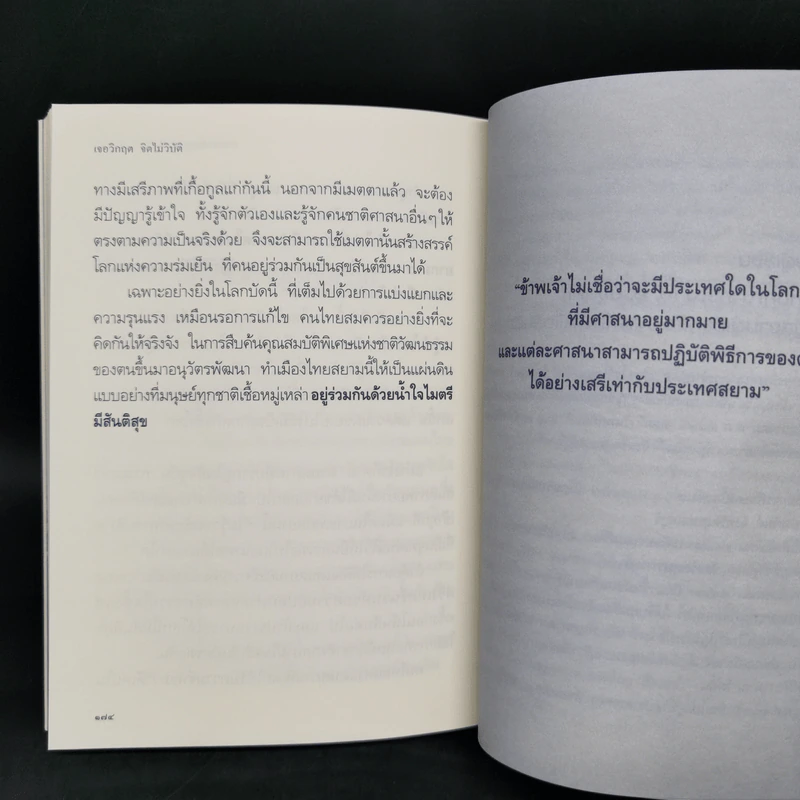 เจอวิกฤต จิตไม่วิบัติ
ทางมีเสรีภาพที่เกื้อกูลแก่กันนี้ นอกจากมีเมตตาแล้ว จะต้อง
มีปัญญารู้เข้าใจ ทั้งรู้จักตัวเองและรู้จักคนชาติศาสนาอื่นๆให้
ตรงตามความเป็นจริงด้วย จึงจะสามารถใช้เมตตานั้นสร้างสรรค์
โลกแห่งความร่มเย็น ที่คนอยู่ร่วมกันเป็นสุขสันต์ขึ้นมาได้
เฉพาะอย่างยิ่งในโลกบัดนี้ ที่เต็มไปด้วยการแบ่งแยกและ
ความรุนแรง เหมือนรอการแก้ไข คนไทยสมควรอย่างยิ่งที่จะ
คิดกันให้จริงจัง ในการสืบค้นคุณสมบัติพิเศษแห่งชาติวัฒนธรรม
ของตนขึ้นมาอนุวัตรพัฒนา ทำเมืองไทยสยามนี้ให้เป็นแผ่นดิน
แบบอย่างที่มนุษย์ทุกชาติเชื้อหมู่เหล่า อยู่ร่วมกันด้วยน้ำใจไมตรี
มีสันติสุข
๑๗๔
“ข้าพเจ้าไม่เชื่อว่าจะมีประเทศใดในโลก
ที่มีศาสนาอยู่มากมาย
และแต่ละศาสนาสามารถปฏิบัติพิธีการของ
ได้อย่างเสรีเท่ากับประเทศสยาม”